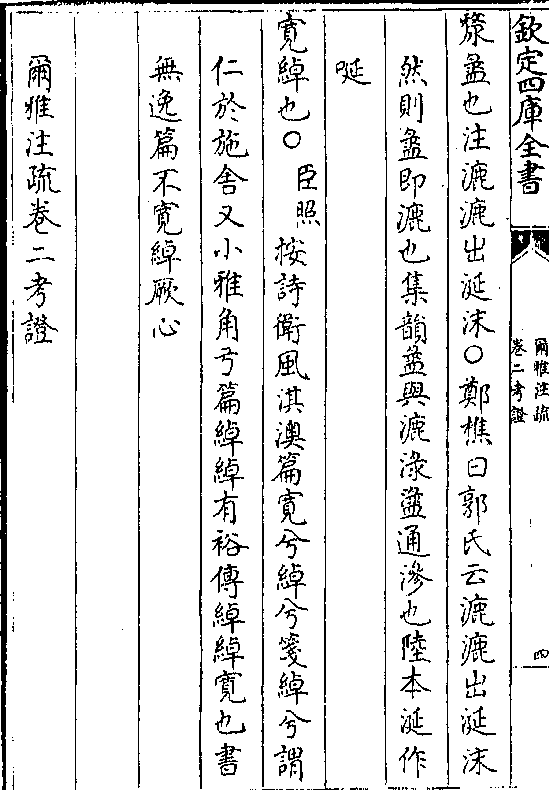 欽定四庫全書
爾雅注疏
卷二考證
四
漦盝也注漉漉出涎沫○鄭樵曰郭氏云漉漉出涎沫
然則盝即漉也集韻盝與漉淥盪通滲也陸本涎作
唌
寛綽也○臣照按詩衛風淇澳篇寛兮綽兮箋綽兮謂
仁於施舍又小雅角弓篇綽綽有裕傳綽綽寛也書
無逸篇不寛綽厥心
爾雅注疏卷二考證